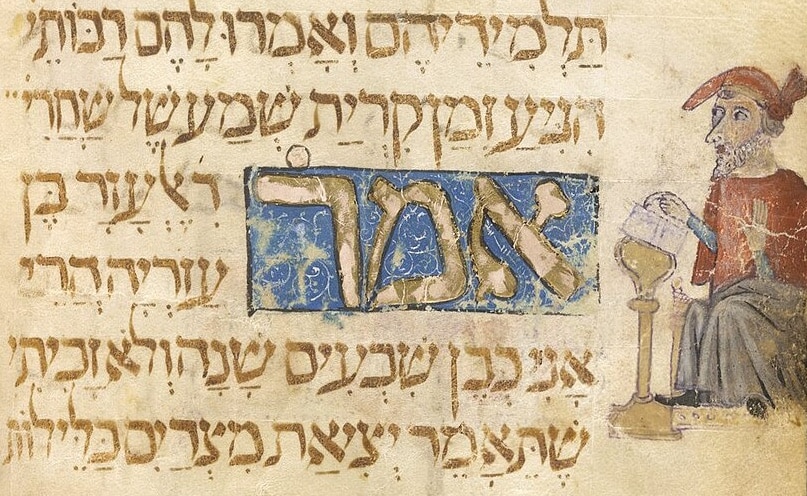 תַּלְמִידֵיהֶם וְאָמְרוּ לָהֶם רַבּוֹתֵי
הִגִּיעַ זְמַן קְרִיַת שְׁמַע שֶׁל שַׁחֲרִי
אמר ר אֶלְעָזָר בֶּן
עֲזַרְיָה הֲרֵי
אֲנִי כְּבֶן שִׁבְעִים שָׁנָה וְלֹא זָכִיתִי
שֶׁתֵּאָמֵר יְצִיאַת מִצְרַיִם בַּלֵּילוֹת